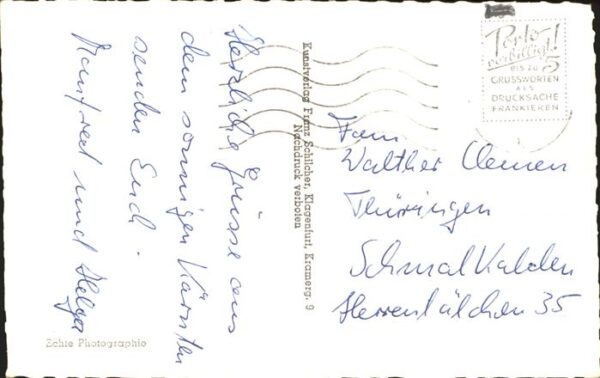 Herzliche Grüsse aus
dem sonnigen Kärnten
senden Euch.
Manfred und Helga
Echte Photographie
Kunstverlag Franz Schilcher, Klagenfurt, Kramerg. 9
Nachdruck verboten
Porto
verbilligt!
BIS ZU 5
GRUSSWORTEN
ALS
DRUCKSACHE
FRANKIEREN
Fam.
Walther Clemen
Thüringen
Schmalkalden
Herrentälchen 35